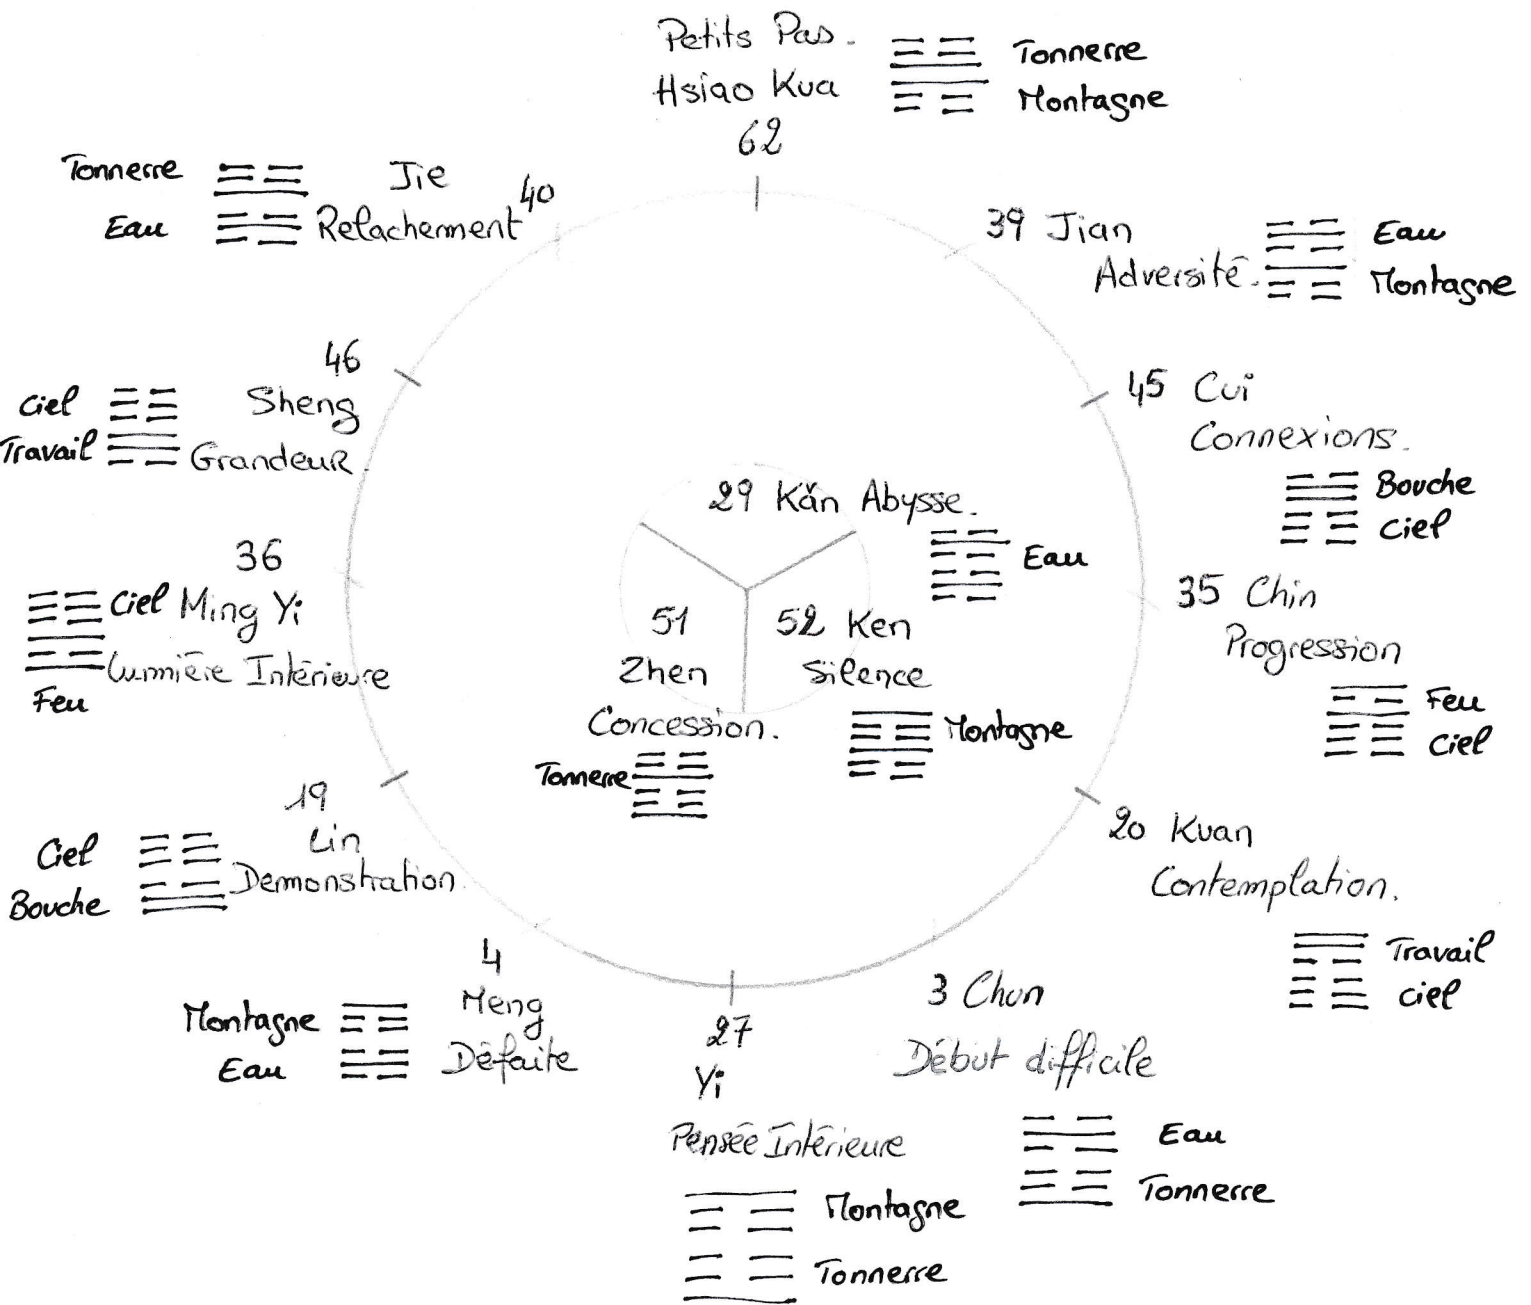 Petits Pas.
Hsiao Kua
62
Tonnerre
Montagne
39 Jian
Adversité.
Eau
Montagne
45 Cui
Connexions.
Bouche
Ciel
35 Chin
Progression
Feu
Ciel
20 Kuan
Contemplation.
Travail
Ciel
3 Chun
Début difficile
Eau
Tonnerre
27
Yi
Pensée Intérieure
Montagne
Tonnerre
4
Meng
Défaite
Montagne
Eau
19
Lin
Demonstration.
Ciel
Bouche
36
Ciel Ming Yi
Lumière Intérieure
Feu
46
Sheng
Grandeur.
Ciel
Travail
40
Jie
Relachement
Tonnerre
Eau
29 Kăn Abysse.
Eau
51
Zhen
Concession.
Tonnerre
52 Ken
Silence
Montagne